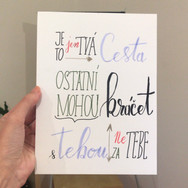 JE TO jen TVÁ Cesta
OSTATNÍ MOHOU kráčet
s tebou, Ne ZA TEBE